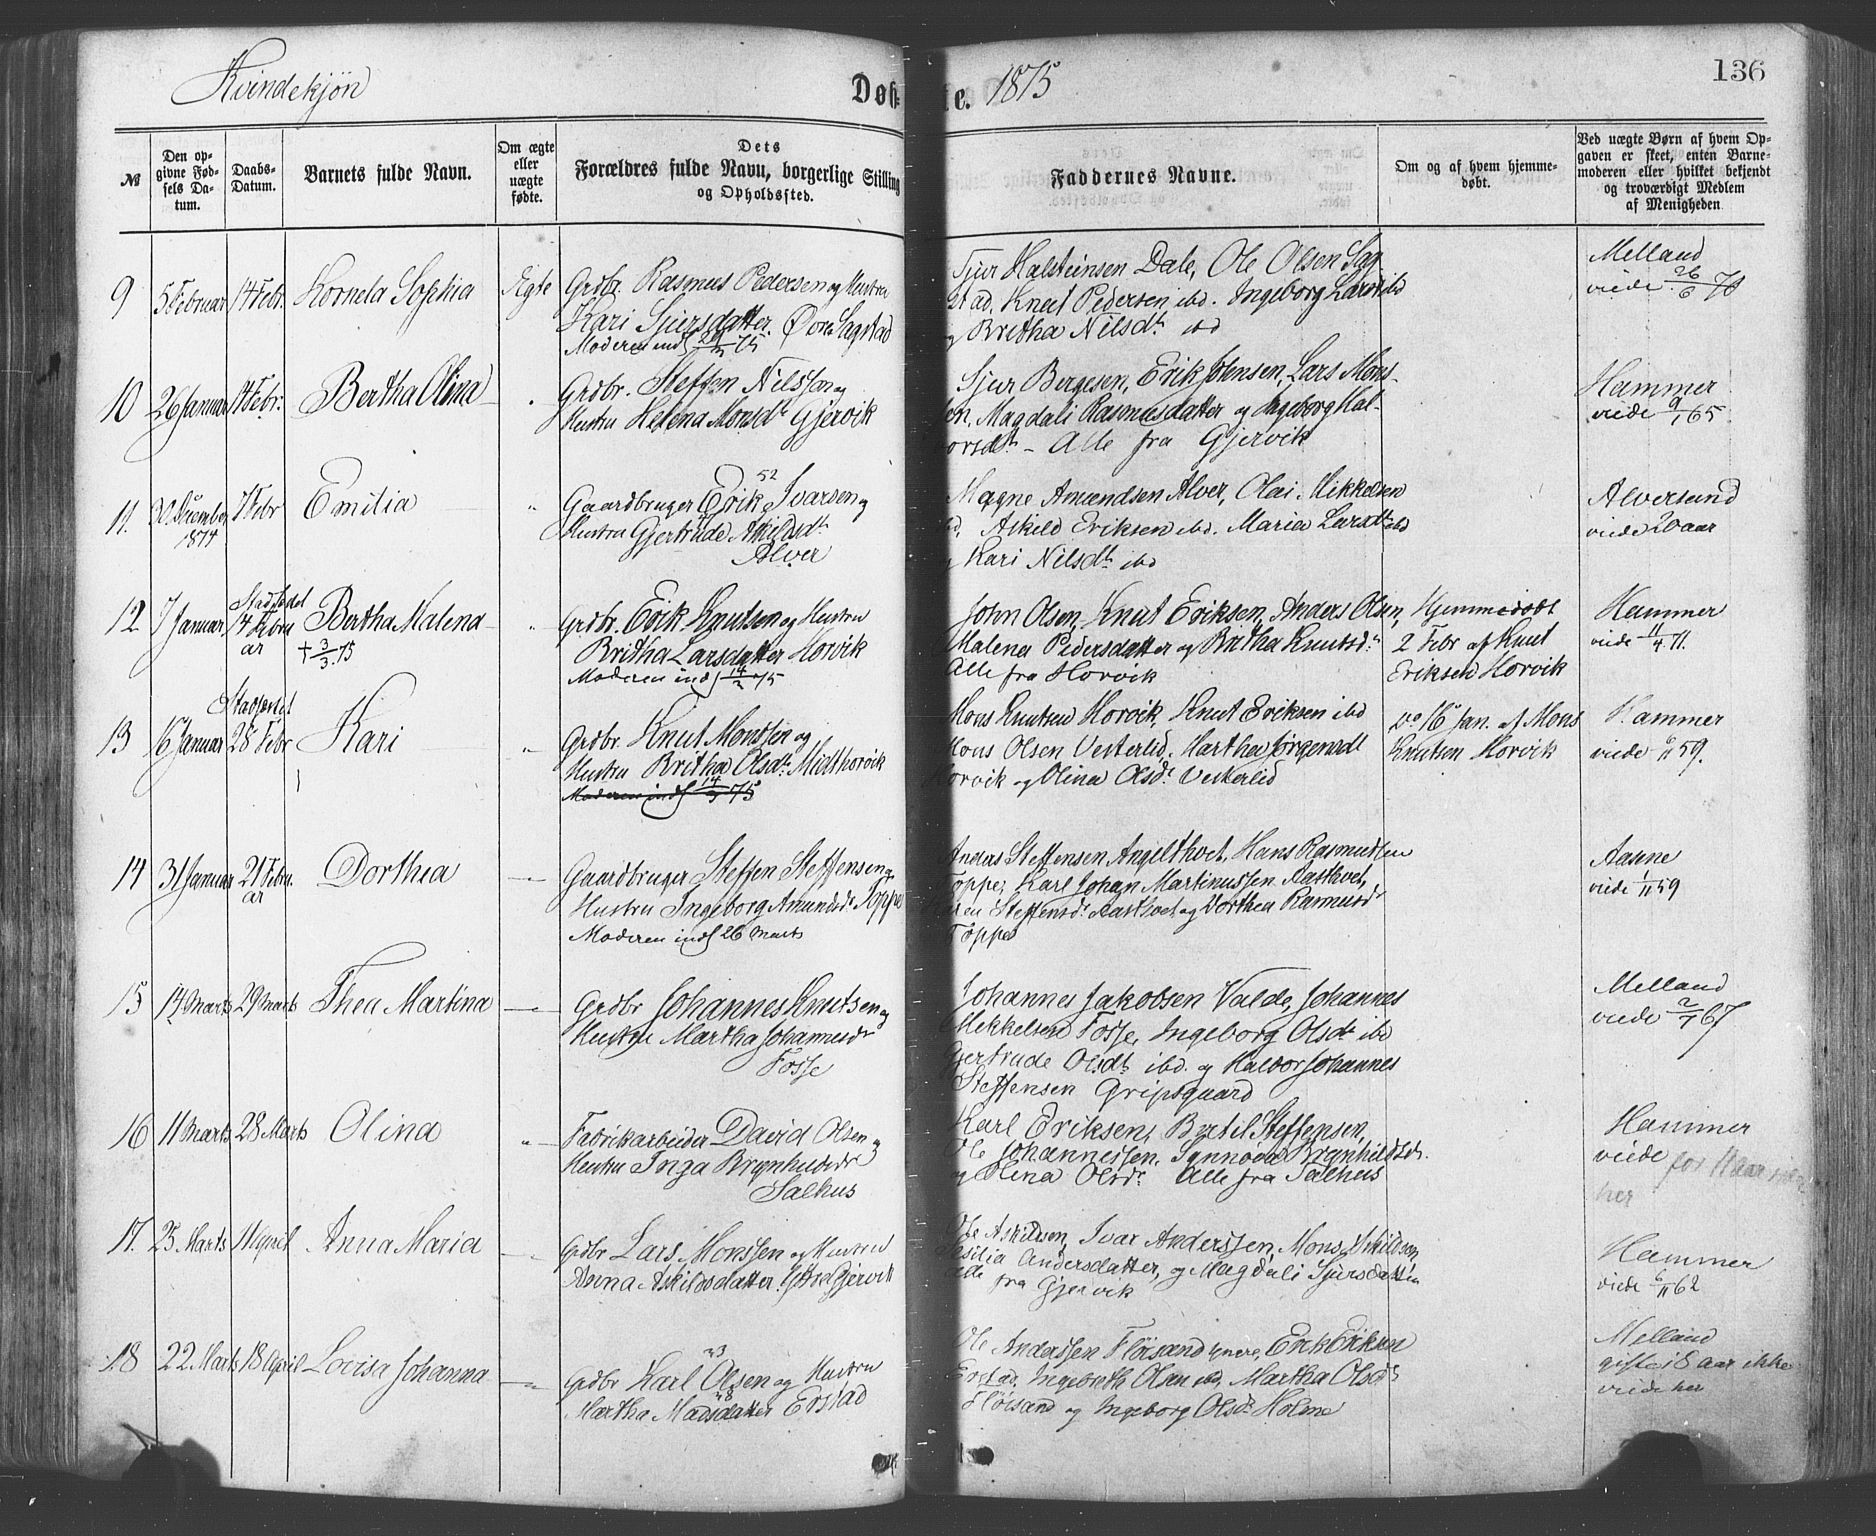 Kvindekjøn
Døbte. 1875
136
№
Den opgivne Fødsels Datum.
Daabs-Datum.
Barnets fulde Navn.
Om ægte eller uægte fødte.
Dets Forældres fulde Navn, borgerlige Stilling og Opholdssted.
Faddernes Navne.
Om og af hvem hjemmedøbt.
Ved uægte Børn af hvem Opgaven er skeet, enten Barnemoderen eller hvilket bekjendt og troværdigt Medlem af Menigheden
9 5 Februar 14 Febr. Kornela Sophia Ægte
Grdbr. Rasmus Pedersen og Hustru
Kari Sjursdatter. Øvre Sagstad
Moderen indl 75
Sjur Halsteinsen Dale, Ole Olsen Sag
stad, Knut Pedersen ibd. Ingeborg Larsd ibd
og Britha Nilsdt ibd
Melland
viede 26/6 70
10 26 Januar 14 Febr. Bertha Olina "
Grdbr. Steffen Nilssen og
Hustru Helena Monsdt Gjervik
Sjur Bergesen, Erik Johnsen, Lars Mons-
en, Magdali Rasmusdatter og Ingeborg Hal-
vorsdt - Alle fra Gjervik
Hammer
viede 9/1 65.
11. 30 December 1874 7 Febr Emilia "
Gaardbruger Erik Ivarsen og
52
Hustru Gjertrude Askildsdt
Alver
Magne Amundsen Alver, Olai Mikkelsen
ibd, Askild Eriksen ibd. Maria Larsdt ibd
og Kari Nilsdt ibd
Alversund
viede 20 aar
12 7 Januar Stadfæstet 14 Februar Bertha Malena "
† 3/3 75
Grdbr. Erik Knutsen og Hustru
Britha Larsdatter Horvik
Moderen indl 14/3 75
John Olsen, Knut Eriksen, Anders Olsen,
Malena Pedersdatter og Britha Knutsdt
Alle fra Horvik
Hjemmedøbt
2 Febr af Knut
Eriksen Horvik
Hammer
viede 11/4 71.
13 16 Januar Stadfæstet 28 Febr Kari "
Grdbr. Knut Monssen og
Hustru Britha Olsdt Midthorvik
Moderen indl 14/3 75
Mons Knutsen Horvik, Knut Eriksen ibd
Mons Olsen Vesterlid, Martha Jørgensdt
Horvik og Olina Olsdt Vesterlid
do 16 Jan. af Mons
Knutsen Horvik
Hammer
viede 6/11 59.
14 31 Januar 21 Februar Dorthea —
Gaardbruger Steffen Steffensen og
Hustru Ingeborg Amundsdt Toppe
Moderen indl 26 Marts
Anders Steffensen Angelthvet, Hans Rasmussen
Toppe, Karl Johan Martinussen Aasthvet,
Karen Steffensdt Aasthvet og Dorthea Rasmusdt
Toppe
Aasne
viede 1/11 59
15 14 Marts 29 Marts Thea Martina —
Grdbr Johannes Knutsen og
Hustru Martha Johannesdt
Fosse
Johannes Jakobsen Valde, Johannes
Mikkelsen Fosse, Ingeborg Olsdt ibd
Gjertrude Olsdt ibd. og Halvor Johannes
Steffensen Gripsgaard
Melland
viede 2/7 67
16 11 Marts 28 Marts Olina "
Fabrikarbeider David Olsen og
Hustru Inga Brynhildsdt
Salhus
Karl Eriksen, Bertel Steffensen,
Ole Johannessen, Synnøva Brynhildsdt.
og Olina Olsdt Alle fra Salhus
Hammer
viede for 11 aar siden
her
17. 25 Marts 11 April Anna Maria —
Grdbr Lars Monssen og Hustru
Anna Askildsdatter. Ytre Gjervik
Ole Askildsen, Ivar Anderssen, Mons Askildsen,
Sisilia Andersdatter, og Magdali Sjursdatter
Alle fra Gjervik
Hammer
viede 6/11 62
18 22 Marts 18 April Lovisa Johanna —
Grdbr Karl Olsen og Hustru
Martha Madsdatter Erstad
Ole Anderssen Fløisand Yndre, Erik Eriksen
Erstad, Ingebrikt Olsen ibd, Martha Olsdt
Fløisand og Ingeborg Olsdt Holme
Melland
gifte i 8 aar ikke
viede her